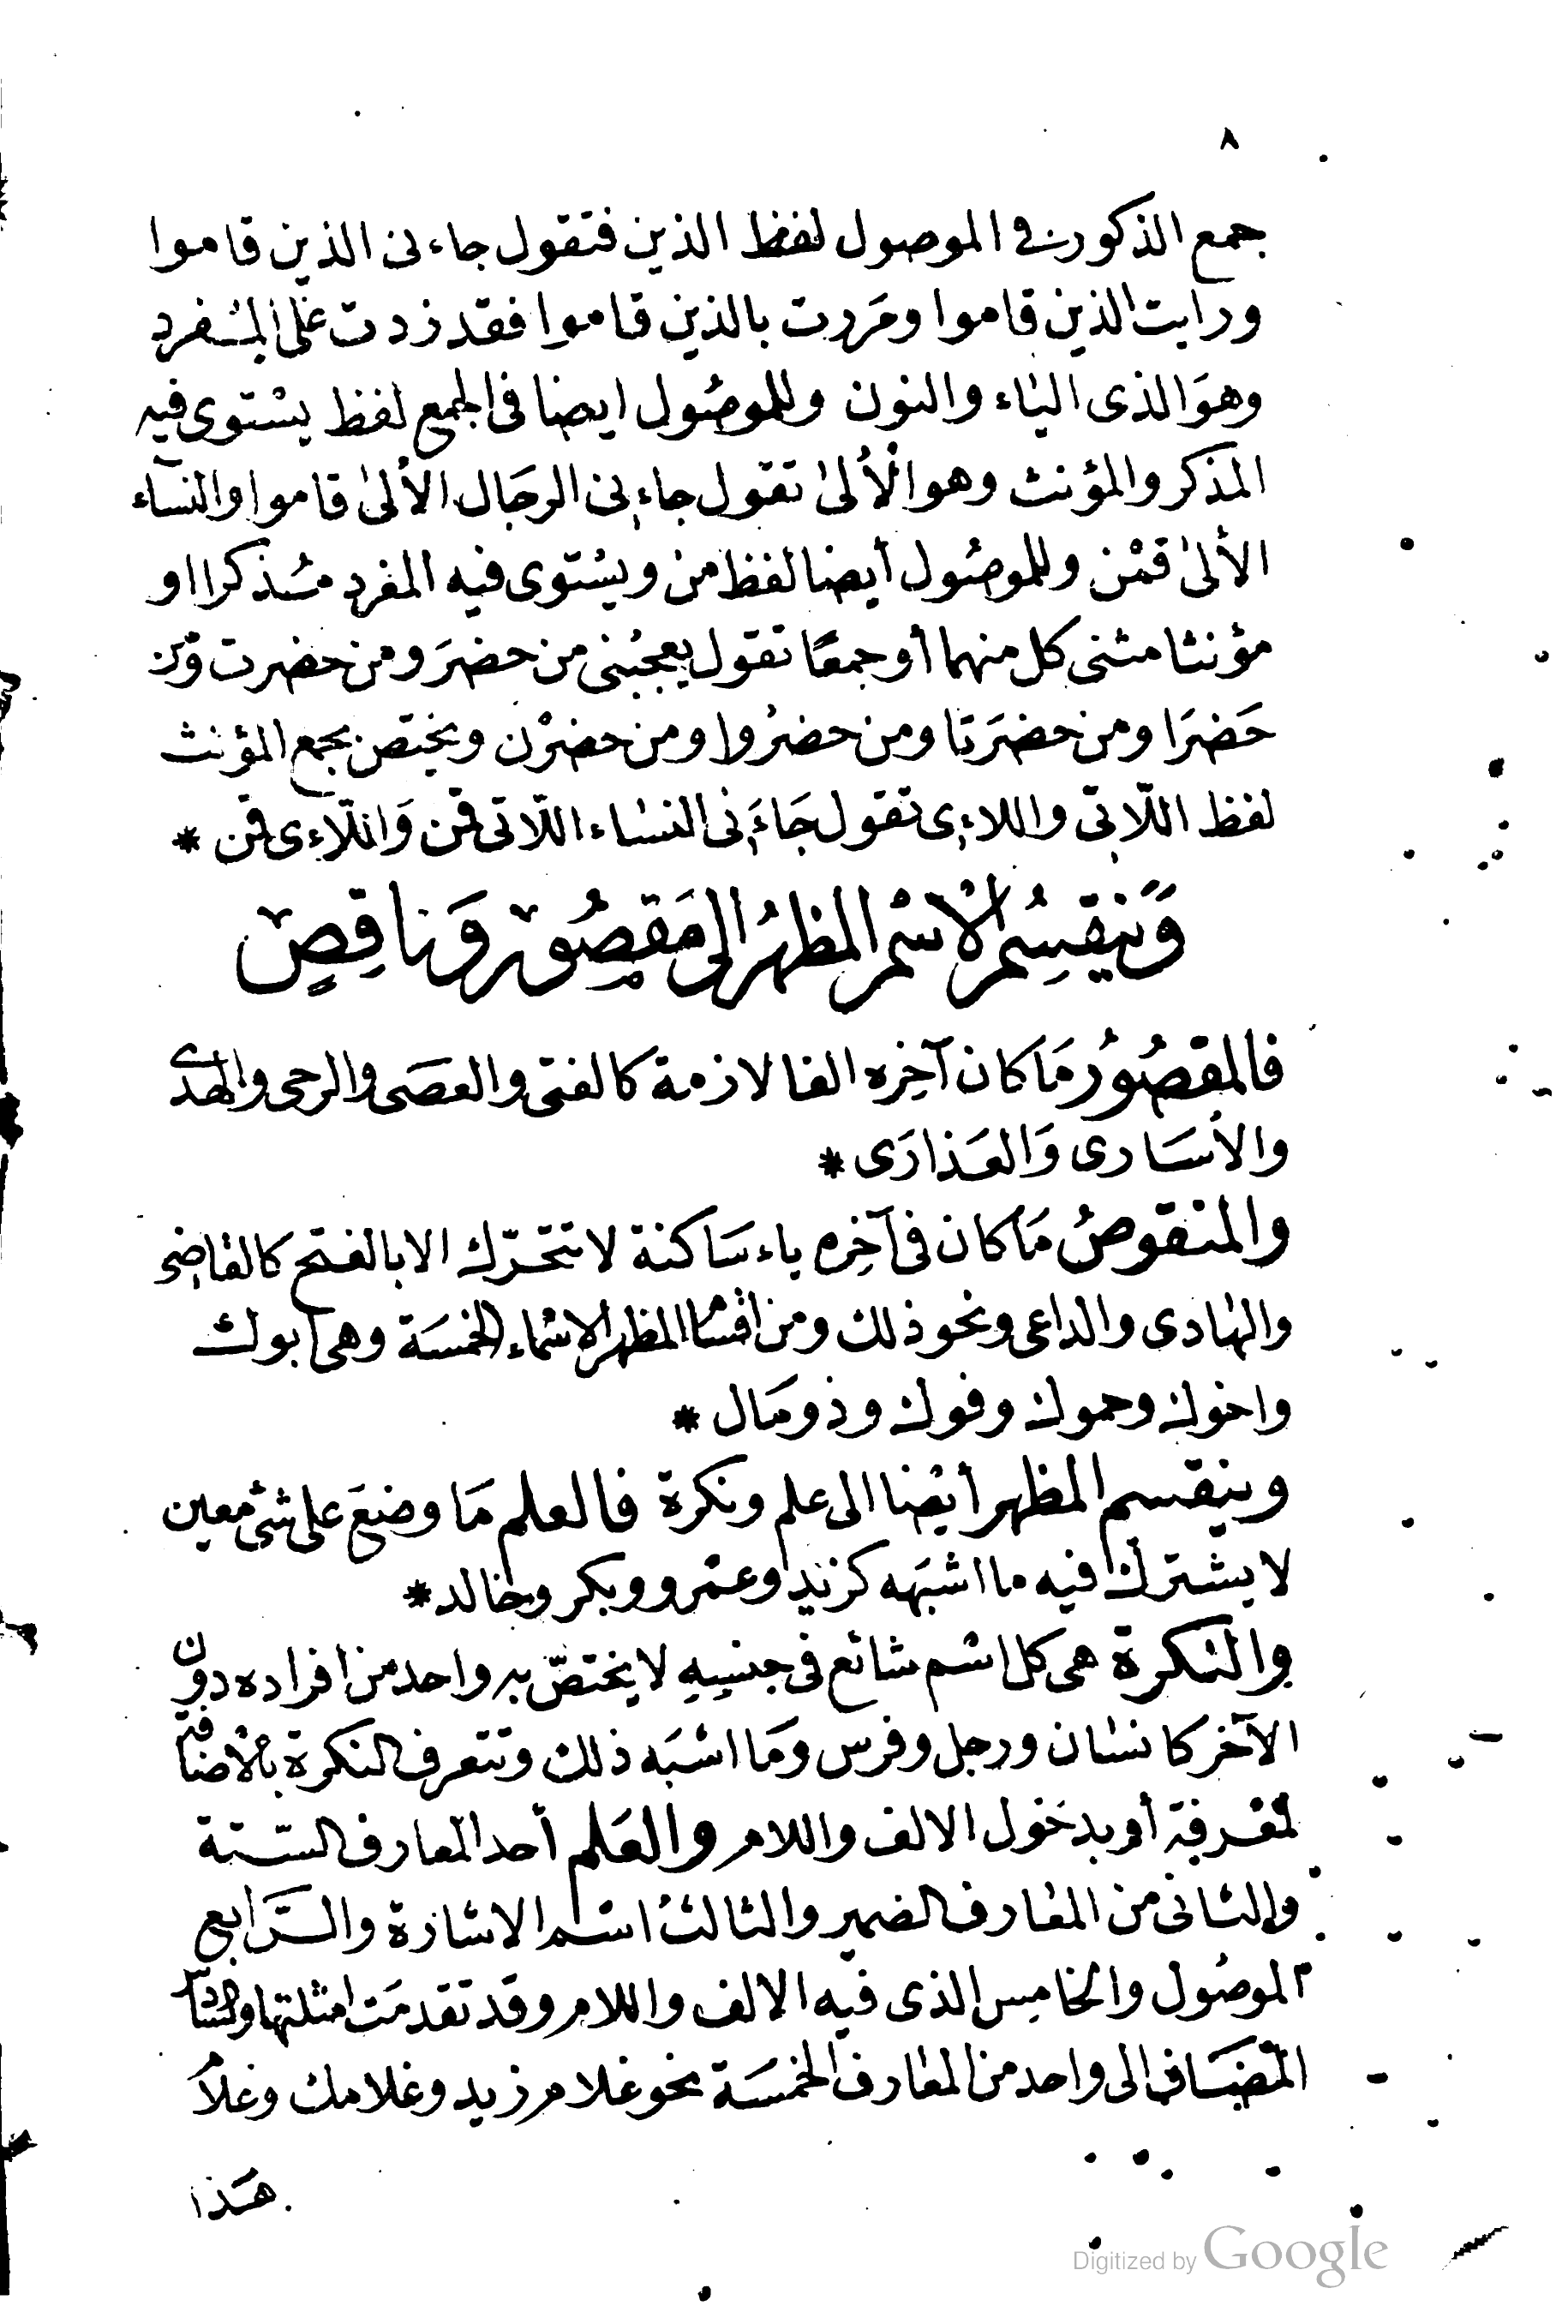 ٨
جمع الذكور في الموصول لفظ الذين فتقول جاءنى الذين قاموا
ورايت الذين قاموا ومَررت بالذين قاموا فقد زدت على المفرد
وهوَ الذى الياء والنون وللموصُول ايضا فى الجمع لفظ يسْتوى فيه
المذكر والمؤنث وهو الْأُلىٰ تقول جاءنى الرجَال الأُلىٰ قاموا والنسآء
الألىٰ قمْن وللموصُول أيضا لفظ من ويسْتوى فيه المفرد مُذكرا او
مؤنثا مثنى كل منهما أو جمعًا تقول يعجبُنى من حضرَ ومن حضرت ومن
حَضرَا ومن حضرَتا ومن حضرُوا ومن حضرْن ويختص بجمع المؤنث
لفظ اللّاتى واللاءِى تقول جَاءَنى النساء اللّاتى قمن وَاللّاءِى قمن *
وَينقسِمُ الْاسْم المظهرُ الى مَقصُورٍ وَناقِصٍ
فالمقصُورُ مَا كان آخِره الفا لازمة كالفتى والعصَى والرحى والهدى
والأسَارى وَالعَذارَى *
والمنقوصُ مَا كان فى آخِره ياء سَاكنة لا تتحرّك الا بالفتح كالقاضى
والهادى والداعى ونحو ذلك ومن اقسَام المظهر الاسْماء الخمسَة وهى أبوك
واخوك وحموك وفوك وذو مَال *
وينقسم المظهر أيْضا الى علم ونكرة فالعلم مَا وضعَ على شئ معين
لا يشترك فيه ما اشبَهه كزيد وعمْرو وبكر وخالد *
والنكرة هى كل اسْم شائع فى جنسِهِ لا يختصّ به واحد من افراده دون
الآخر كانسَان ورجل وفرس ومَا اشبَه ذلك وتتعرف النكرة بالْاضافة
لمعرفة أو بدخول الالف واللام والعَلم أحد المعارف السّتة
والثانى من المعَارف الضمير والثالثُ اسْم الاشارة والرَّابع
الموصُول والخامِس الذى فيه الالف واللام وقد تقدمَت امثلتها والسَّادس
المضَاف الى واحد من المعَارف الخمسَة نحو غلام زيد وغلامك وغلَامُ
هَذا
Digitized by Google